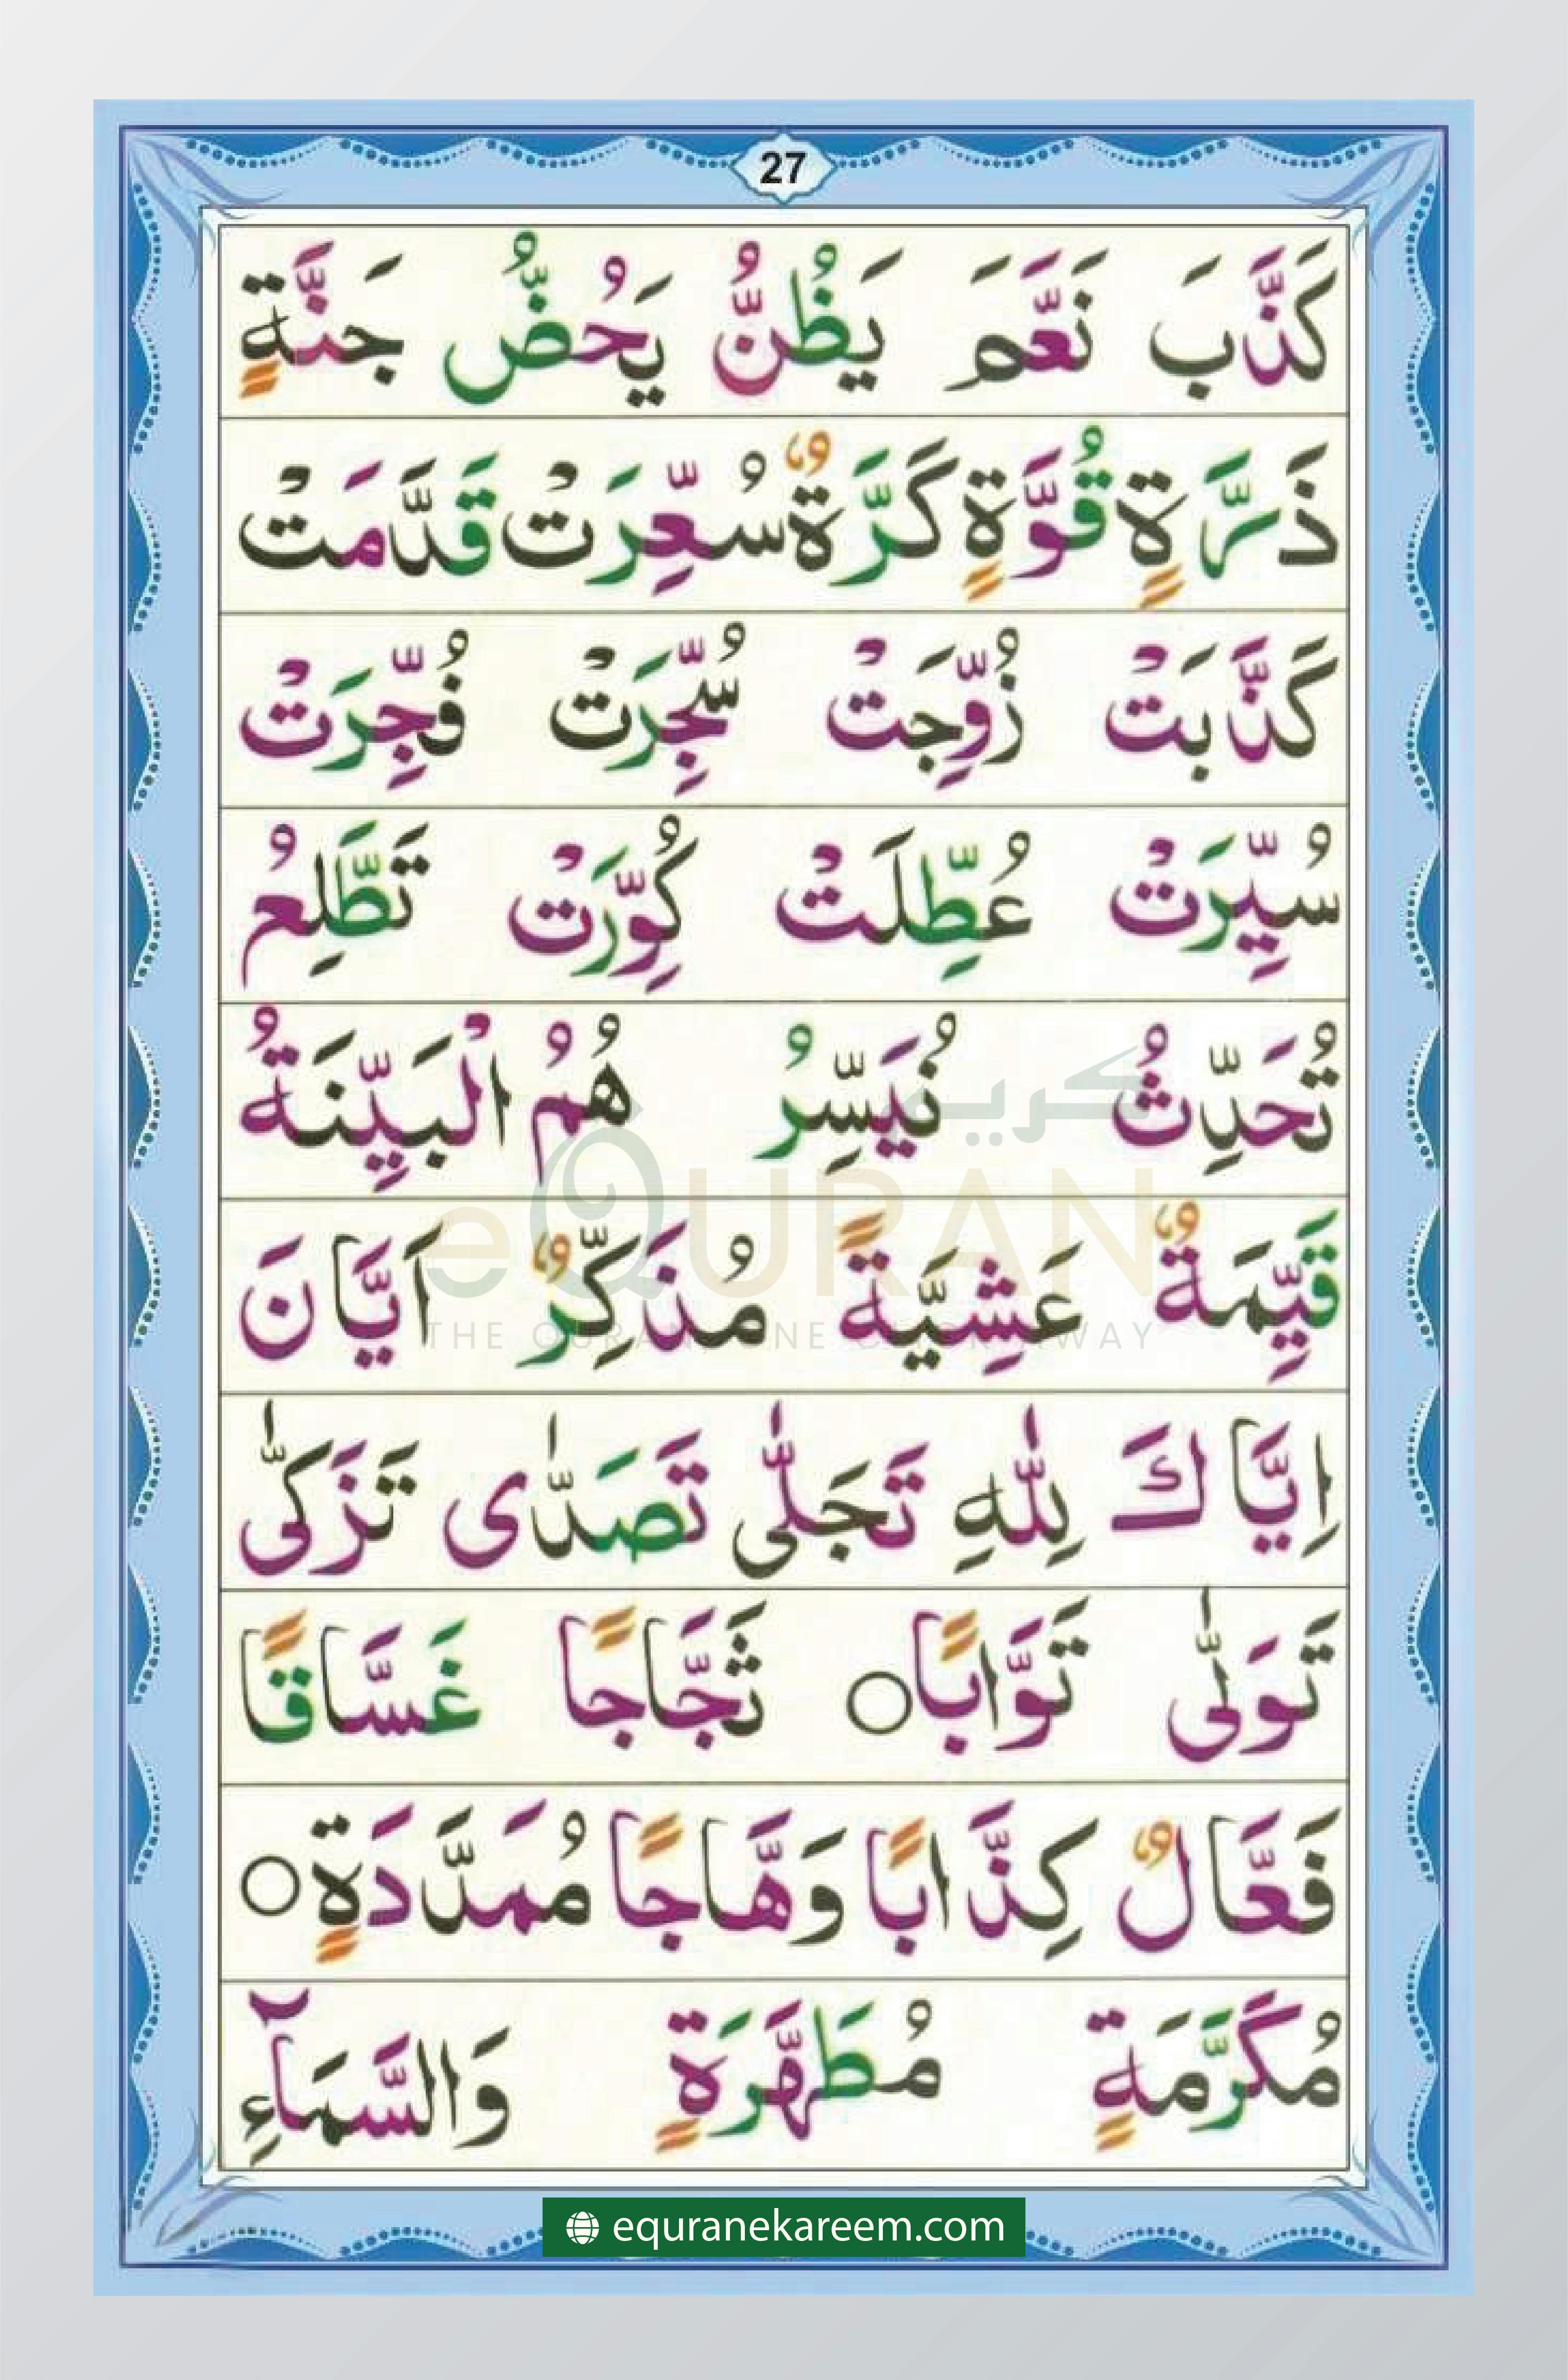 27
كَذَّبَ نَعَّمَ يَظُنُّ يَحُضُّ جَنَّةٍ
ذَرَّةٍ قُوَّةٍ كَرَّةٌ سُعِّرَتْ قَدَّمَتْ
كَذَّبَتْ زُوِّجَتْ سُجِّرَتْ فُجِّرَتْ
سُيِّرَتْ عُطِّلَتْ كُوِّرَتْ تَطَّلِعُ
تُحَدِّثُ نُيَسِّرُ هُمُ الْبَيِّنَةُ
قَيِّمَةٌ عَشِيَّةً مُذَكِّرٌ اَيَّانَ
اِيَّاكَ لِلّٰهِ تَجَلّٰى تَصَدّٰى تَزَكّٰى
تَوَلّٰى تَوَّابًا○ ثَجَّاجًا غَسَّاقًا
فَعَّالٌ كِذَّابًا وَهَّاجًا مُمَدَّدَةٍ○
مُكَرَّمَةٍ مُطَهَّرَةٍ وَالسَّمَآءِ
كريم
eQURAN
THE QURAN, ONE CLICK AWAY
equranekareem.com